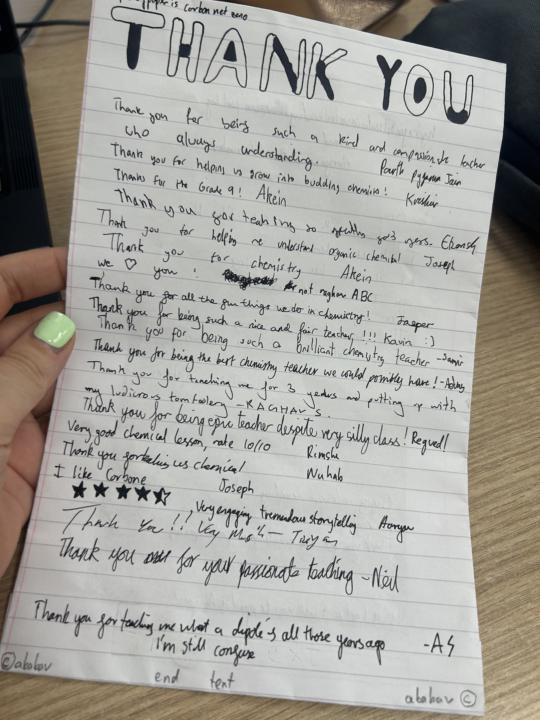 paper is carbon net zero
THANK YOU
Thank you for being such a kind and compassionate teacher
who always understanding.
Thank you for helping us grow into budding chemists!
Thanks for the Grade 9! Akein
Thank you for teaching so
Thank you for helping me understand organic chemical Joseph
Thank you for chemistry Akein
we ♡ you! not raghav ABC
Thank you for all the fun things we do in chemistry! Jasper
Thank you for being such a nice and fair teacher!!! Kavin :)
Thank you for being such a brilliant chemistry teacher - Samir
Thank you for being the best chemistry teacher we could possibly have!
Thank you for teaching me for 3 years and putting up with
my ludicrous tomfoolery - RAGHAV S.
Thank you for being epic teacher despite very silly class!
Very good chemical lesson, rate 10/10
Thank you for teaching us chemical
I like Carbone Joseph
Very engaging, tremendous storytelling
Thank You!! Very Much
Thank you for your passionate teaching - Neil
Thank you for teaching me what a dipole is all those years ago - AS
I'm still confuse
© ababav
end text
ababav ©